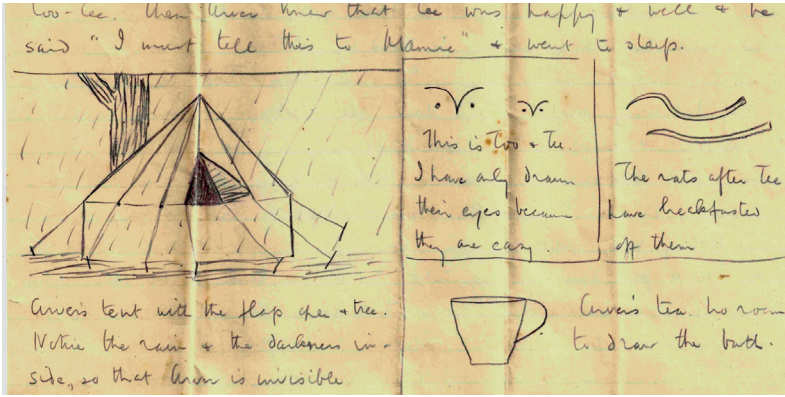 too-tee. Then knew that Tee was happy & well & he
said "I must tell this to Mamie" & went to sleep.
This is Too & Tee.
I have only drawn
their eyes because
they are easy.
The rats after Tee
have breakfasted
off them
tent with the flap open & tree.
Notice the rain & the darkness in-
side, so that is invisible
tea. No room
to draw the bath.